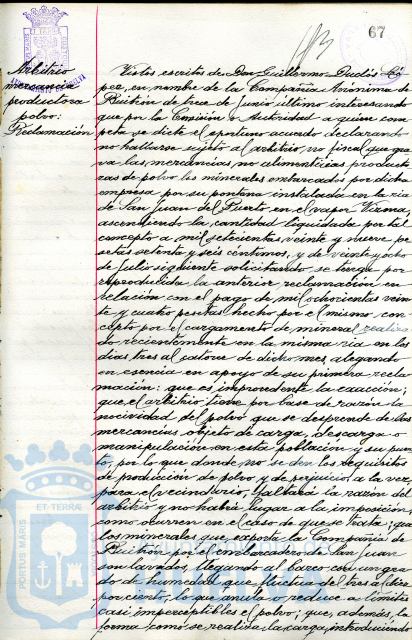 67
Arbitrio
mercancía
productora
polvo:
Reclamación
Vistos escritos de Don Guillermo Duclós Ló-
pez, en nombre de la Compañía Anónima de
Buitrón de trece de Junio último interesando
que por la Comisión o Autoridad a quien com-
peta se dicte el oportuno acuerdo declarando
no hallarse sujeto al arbitrio no fiscal que gra-
va las mercancías no alimenticias producto-
ras de polvo los minerales embarcados por dicha
empresa por su pontona instalada en la ría
de San Juan del Puerto en el vapor
ascendiendo la cantidad liquidada por tal
concepto a mil setecientas veinte y nueve pe-
setas setenta y seis céntimos, y de veinte y ocho
de Julio siguiente solicitando se tenga por
reproducida la anterior reclamación en
relación con el pago de mil ochocientas vein-
te y cuatro pesetas hecho por el mismo con-
cepto por el cargamento de mineral realiza-
do recientemente en la misma ría en los
días tres al catorce de dicho mes, alegando
en esencia en apoyo de su primera recla-
mación: que es improcedente la exacción;
que el arbitrio tiene por base de razón la
nocividad del polvo que se desprende de las
mercancías objeto de carga, descarga o
manipulación en esta población y su puer-
to, por lo que donde no se den los requisitos
de producción de polvo y de perjuicio a la vez,
para el vecindario, faltará la razón del
arbitrio y no habrá lugar a la imposición,
como ocurre en el caso de que se trata; que
los minerales que exporta la Compañía de
Buitrón por el embarcadero de San Juan
son lavados, llegando al barco con un gra-
do de humedad que fluctúa del tres al diez
por ciento, lo que anula o reduce a límites
casi imperceptibles el polvo; que, además, la
forma como se realiza la carga, introduciendo
PORTUS MARIS
ET TERRAE